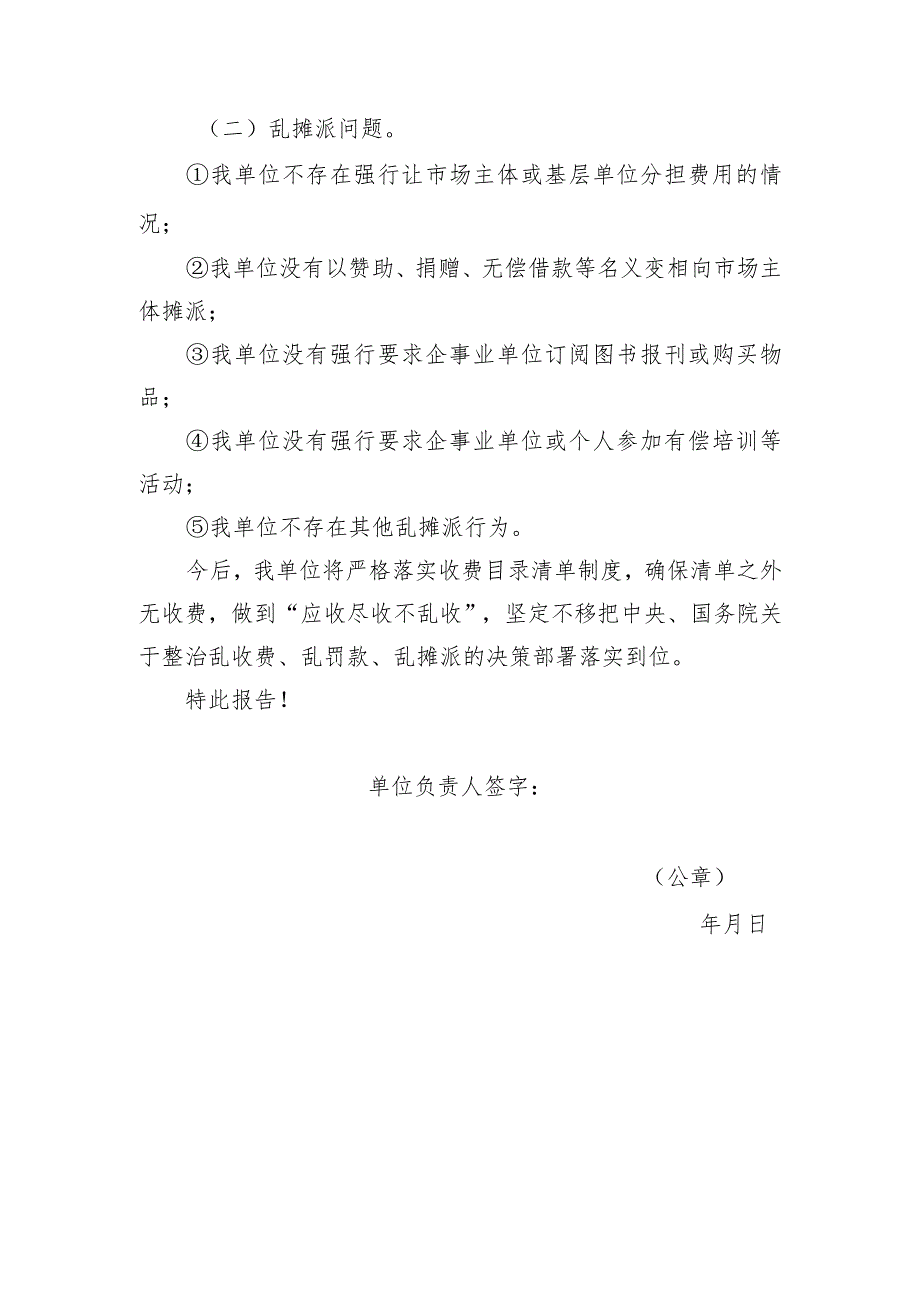 （二）乱摊派问题。
①我单位不存在强行让市场主体或基层单位分担费用的情
况；
②我单位没有以赞助、捐赠、无偿借款等名义变相向市场主
体摊派；
③我单位没有强行要求企事业单位订阅图书报刊或购买物
品；
④我单位没有强行要求企事业单位或个人参加有偿培训等
活动；
⑤我单位不存在其他乱摊派行为。
今后，我单位将严格落实收费目录清单制度，确保清单之外
无收费，做到“应收尽收不乱收”，坚定不移把中央、国务院关
于整治乱收费、乱罚款、乱摊派的决策部署落实到位。
特此报告！
单位负责人签字：
（公章）
年月日